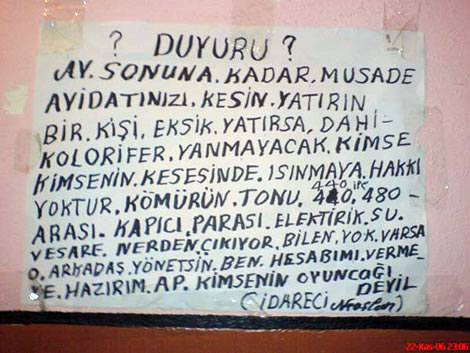 ? DUYURU ?
AY. SONUNA. KADAR. MUSADE
AYIDATINIZI. KESİN. YATIRIN
BİR. KİŞİ. EKSİK. YATIRSA. DAHİ-
KOLORİFER. YANMAYACAK. KİMSE
KİMSENİN. KESESİNDE. ISINMAYA. HAKKI
YOKTUR. KÖMÜRÜN. TONU. 440 İLE 480-
ARASI. KAPICI. PARASI. ELEKTİRİK. SU.
VESARE. NERDEN ÇIKIYOR. BİLEN. YOK. VARSA
O. ARKADAŞ. YÖNETSİN. BEN. HESABIMI. VERME-
YE. HAZIRIM. AP. KİMSENİN OYUNCAĞI
DEYİL
(İDARECİ
22-Kas-06 23:06